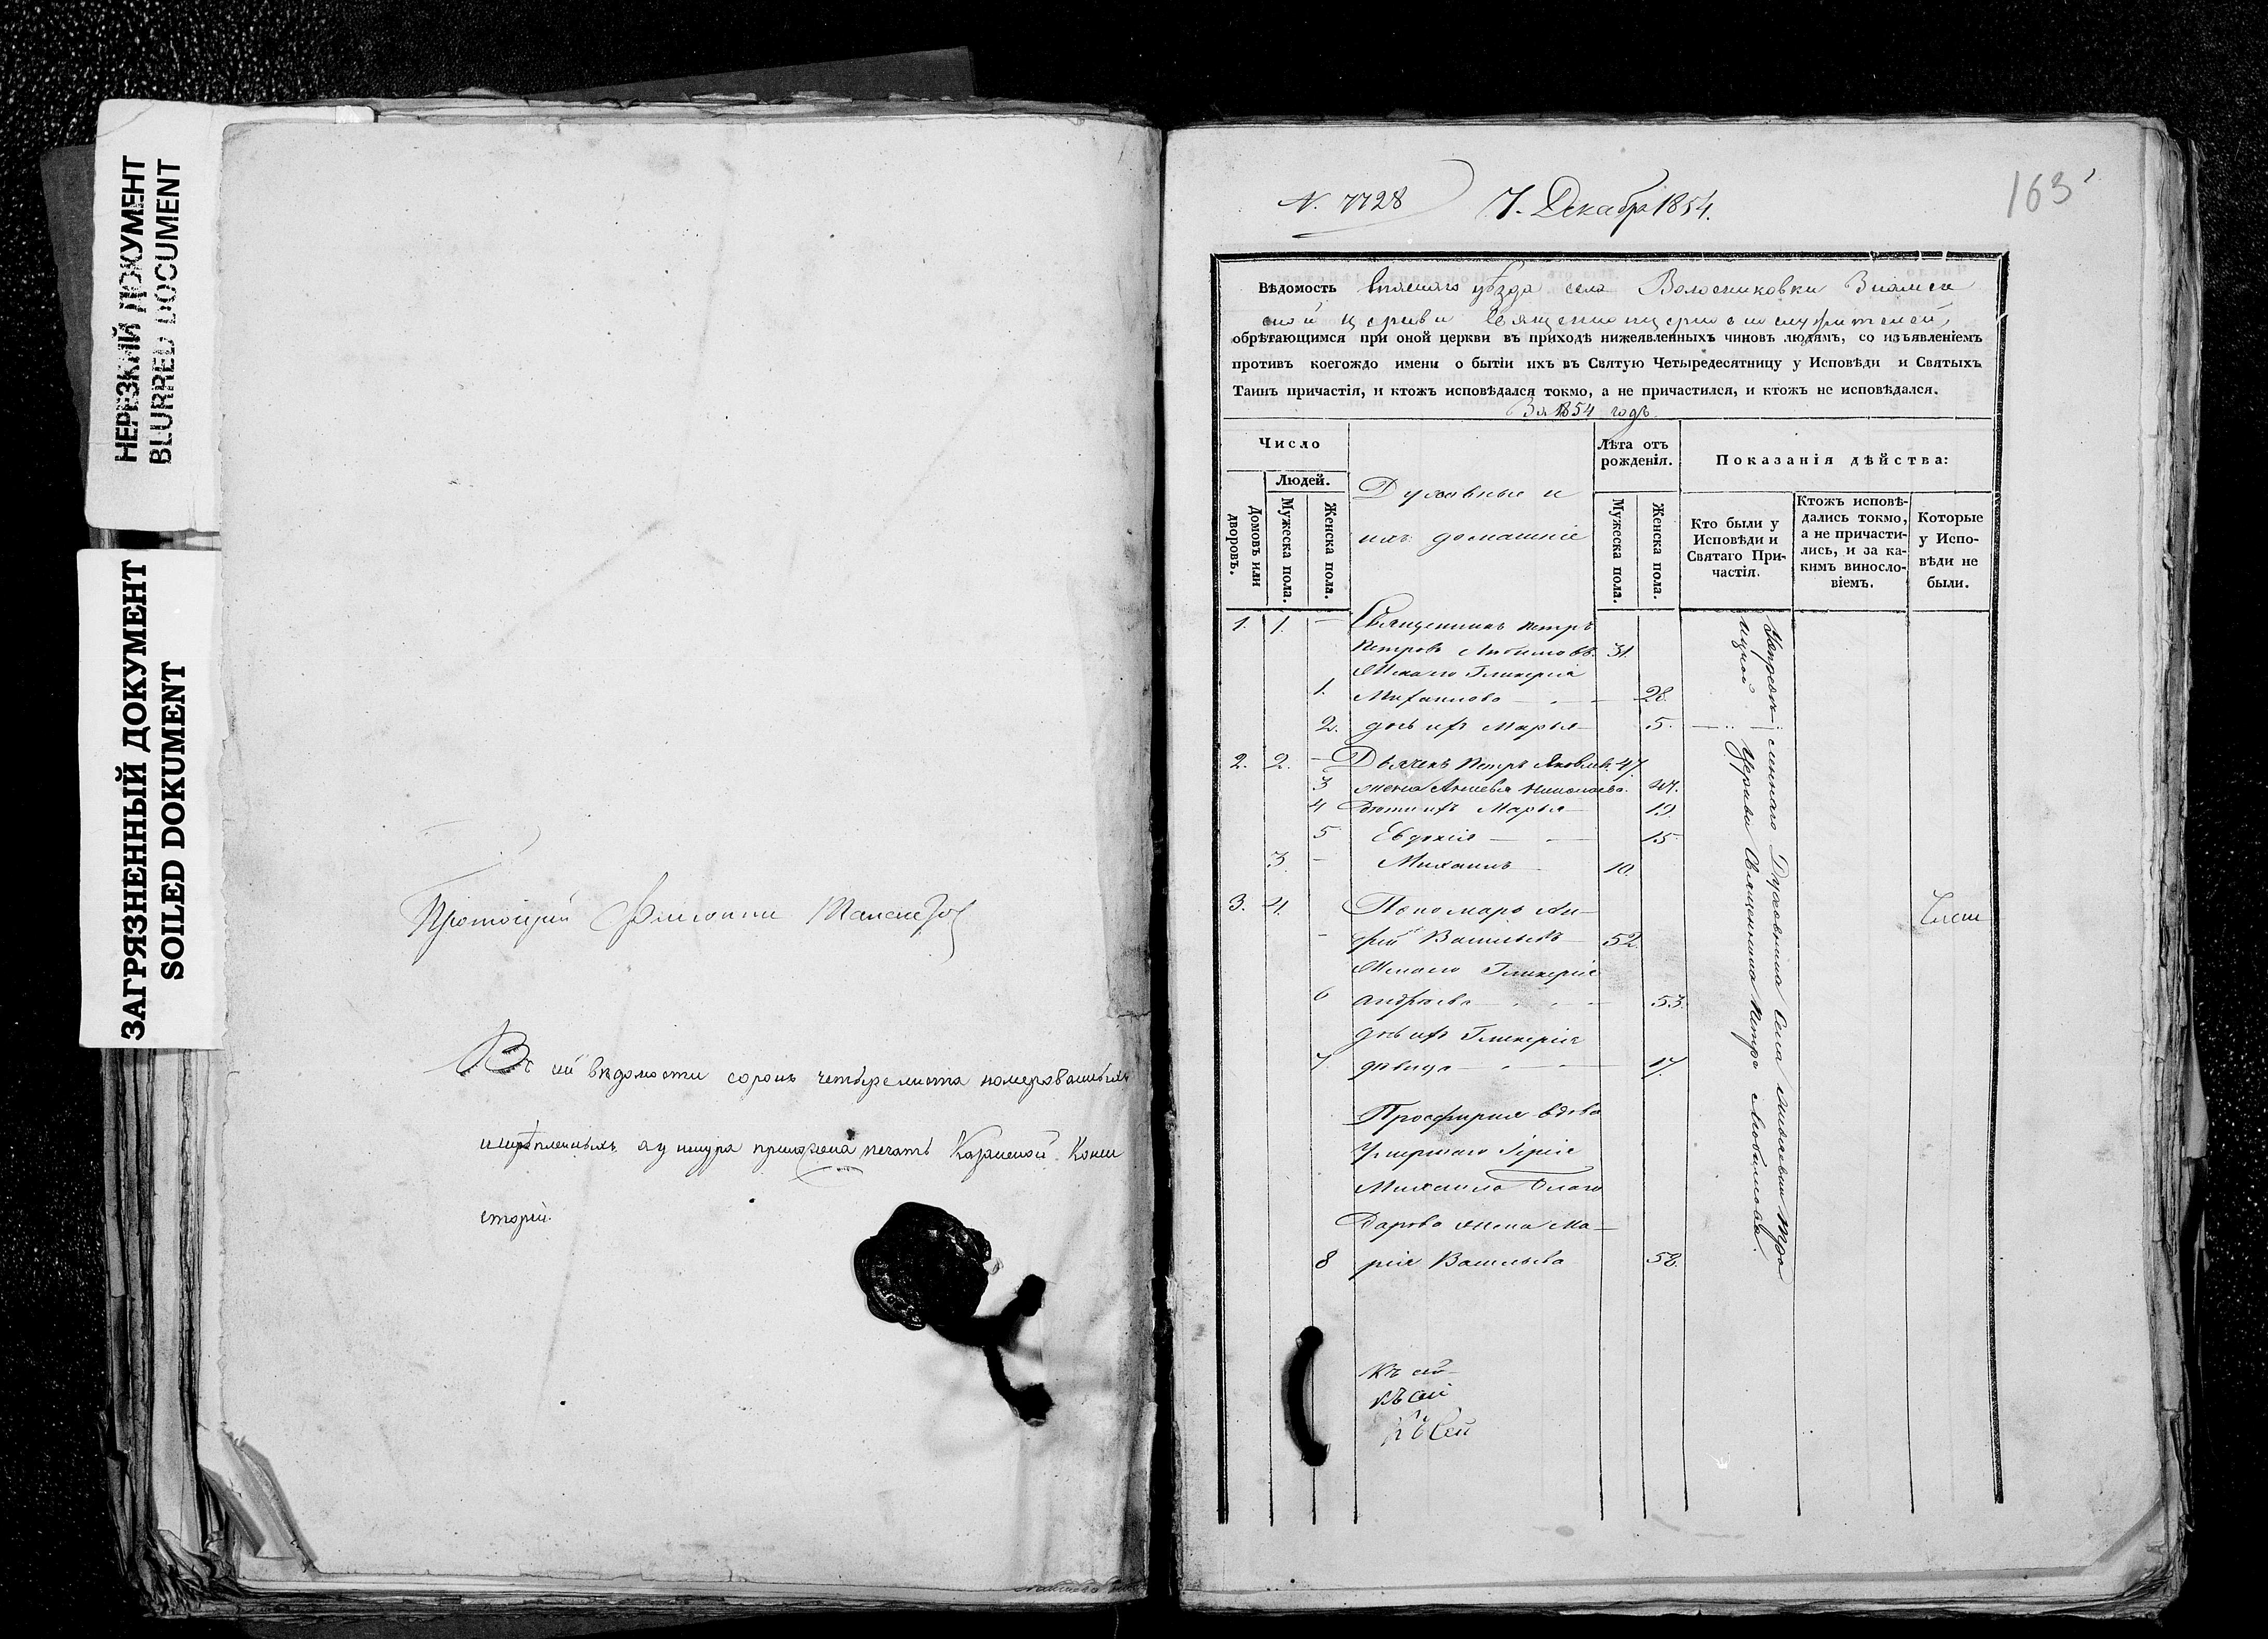 НЕРЕЗКИЙ ДОКУМЕНТ
BLURRED DOCUMENT
ЗАГРЯЗНЕННЫЙ ДОКУМЕНТ
SOILED DOKUMENT
Протоіерей
Въ сей вѣдомости сорокъ четыре листа номерованныхъ
печать Казанской Конси
сторіи.
N. 7728 7. Декабря 1854.
163
Вѣдомость Спасскаго уѣзда села Волосниковки Знамен
ской церкви Священноцерковнослужителей,
обрѣтающимся при оной церкви въ приходѣ нижеявленныхъ чиновъ людямъ, со изъявленіемъ
противъ коегождо имени о бытіи ихъ въ Святую Четыредесятницу у Исповѣди и Святыхъ
Таинъ причастія, и ктожъ исповѣдался токмо, а не причастился, и ктожъ не исповѣдался.
За 1854 годъ.
Число
Людей.
Домовъ или дворовъ.
Мужеска пола.
Женска пола.
Духовные и
ихъ домашніе
Лѣта отъ
рожденія.
Мужеска пола.
Женска пола.
Показанія дѣйства:
Кто были у
Исповѣди и
Святаго При-
частія.
Ктожъ исповѣ-
дались токмо,
а не причасти-
лись, и за ка-
кимъ винословіемъ.
Которые
у Испо-
вѣди не
были.
1. 1. — Священникъ Петръ
Петровъ Любимовъ. 31.
Жена его Гликерія
1. Михаилова — 28.
2. дочь ихъ Марья 5.
2. 2. — Дьячекъ Петръ Яковлевъ. 47.
3 жена Николаева. 47.
4 Дѣти ихъ Марья 19.
5 Евдокія — 15
3. — Михаилъ — 10.
3. 4. Пономарь Ан-
дрей Васильевъ 52.
Жена его Гликерія
6 Андреева — 53.
дочь ихъ Гликерія
7. дѣвица — 17.
Просфирня вдова
Умершаго Іерея
Михаила Благо
Дарова жена Ма-
8 рія Васильева 58.
Къ сей
Къ сей
Къ Сей
Духовника Села
Церкви Священника Петра Любимова.